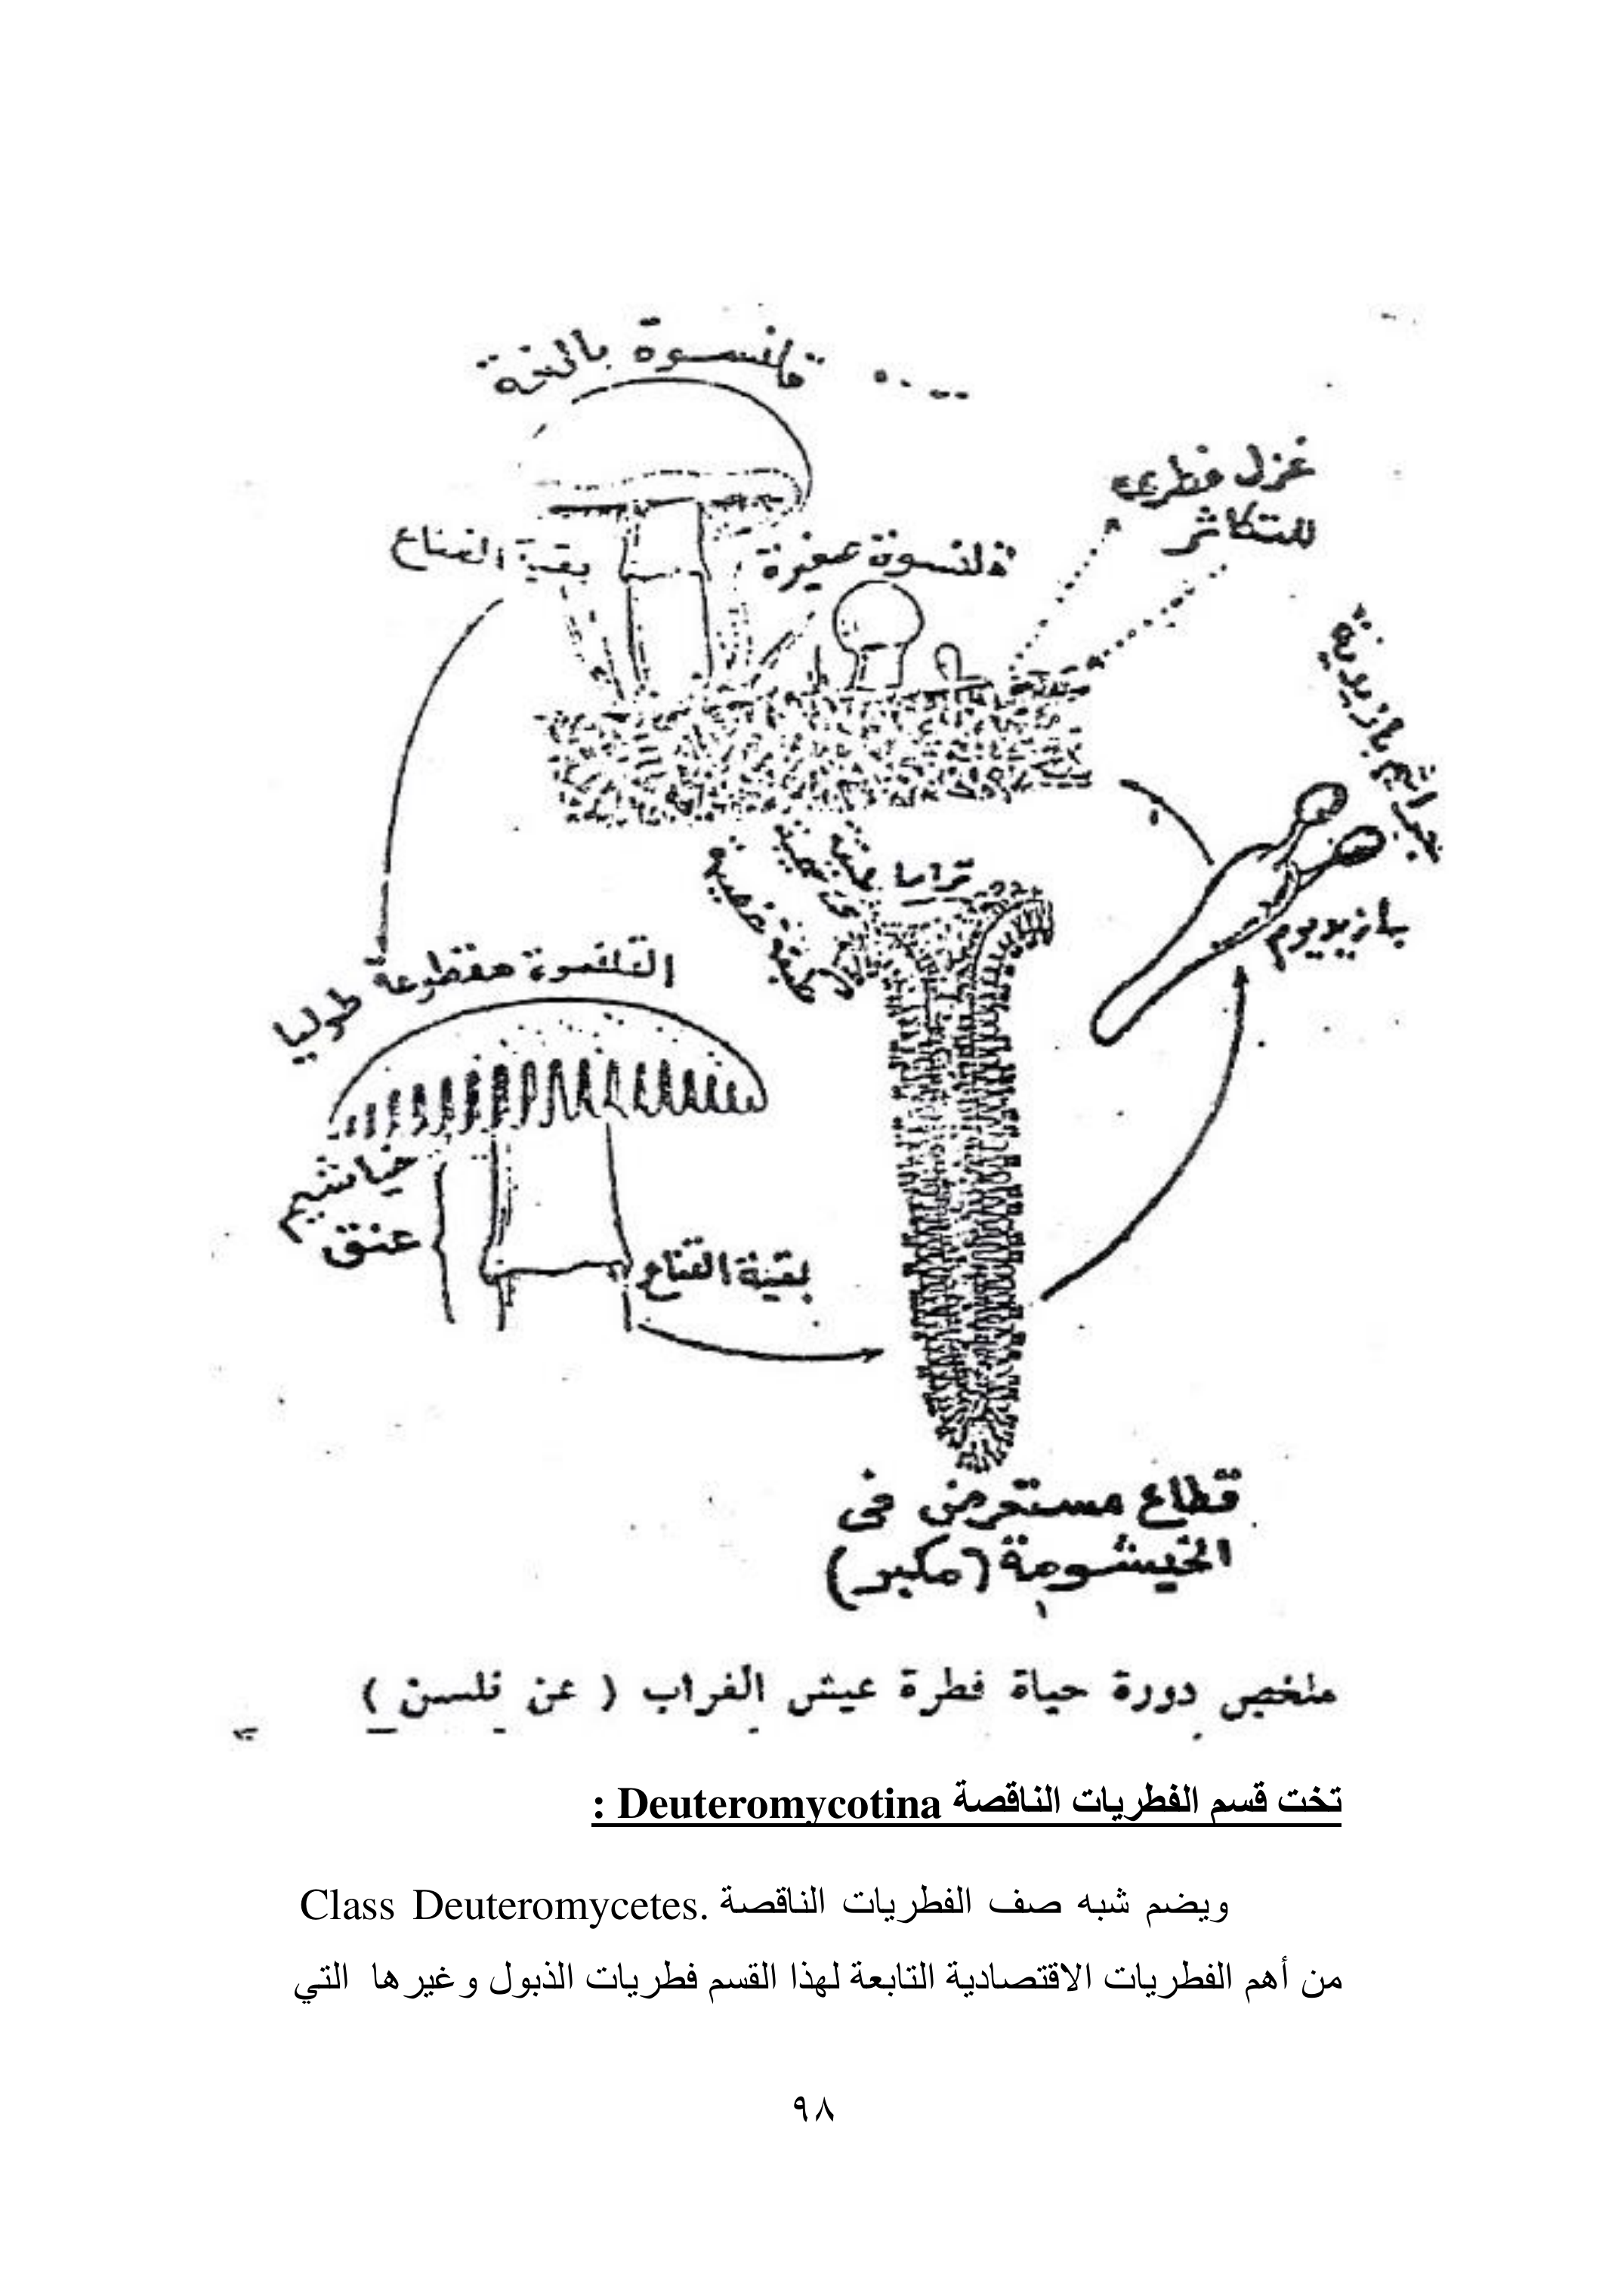 قلنسوة بالغة
غزل فطرى
للتكاثر
بقية القناع
قلنسوة صغيرة
جراثيم بازيدية
تراما
طبقة خصيبة
بازيديوم
القلنسوة مقطوعة طوليا
خياشيم
عنق
بقية القناع
قطاع مستعرض فى
الخيشومة (مكبر)
ملخص دورة حياة فطرة عيش الغراب ( عن نلسن )
تخت قسم الفطريات الناقصة Deuteromycotina :
ويضم شبه صف الفطريات الناقصة Class Deuteromycetes.
من أهم الفطريات الاقتصادية التابعة لهذا القسم فطريات الذبول وغيرها التي
٩٨